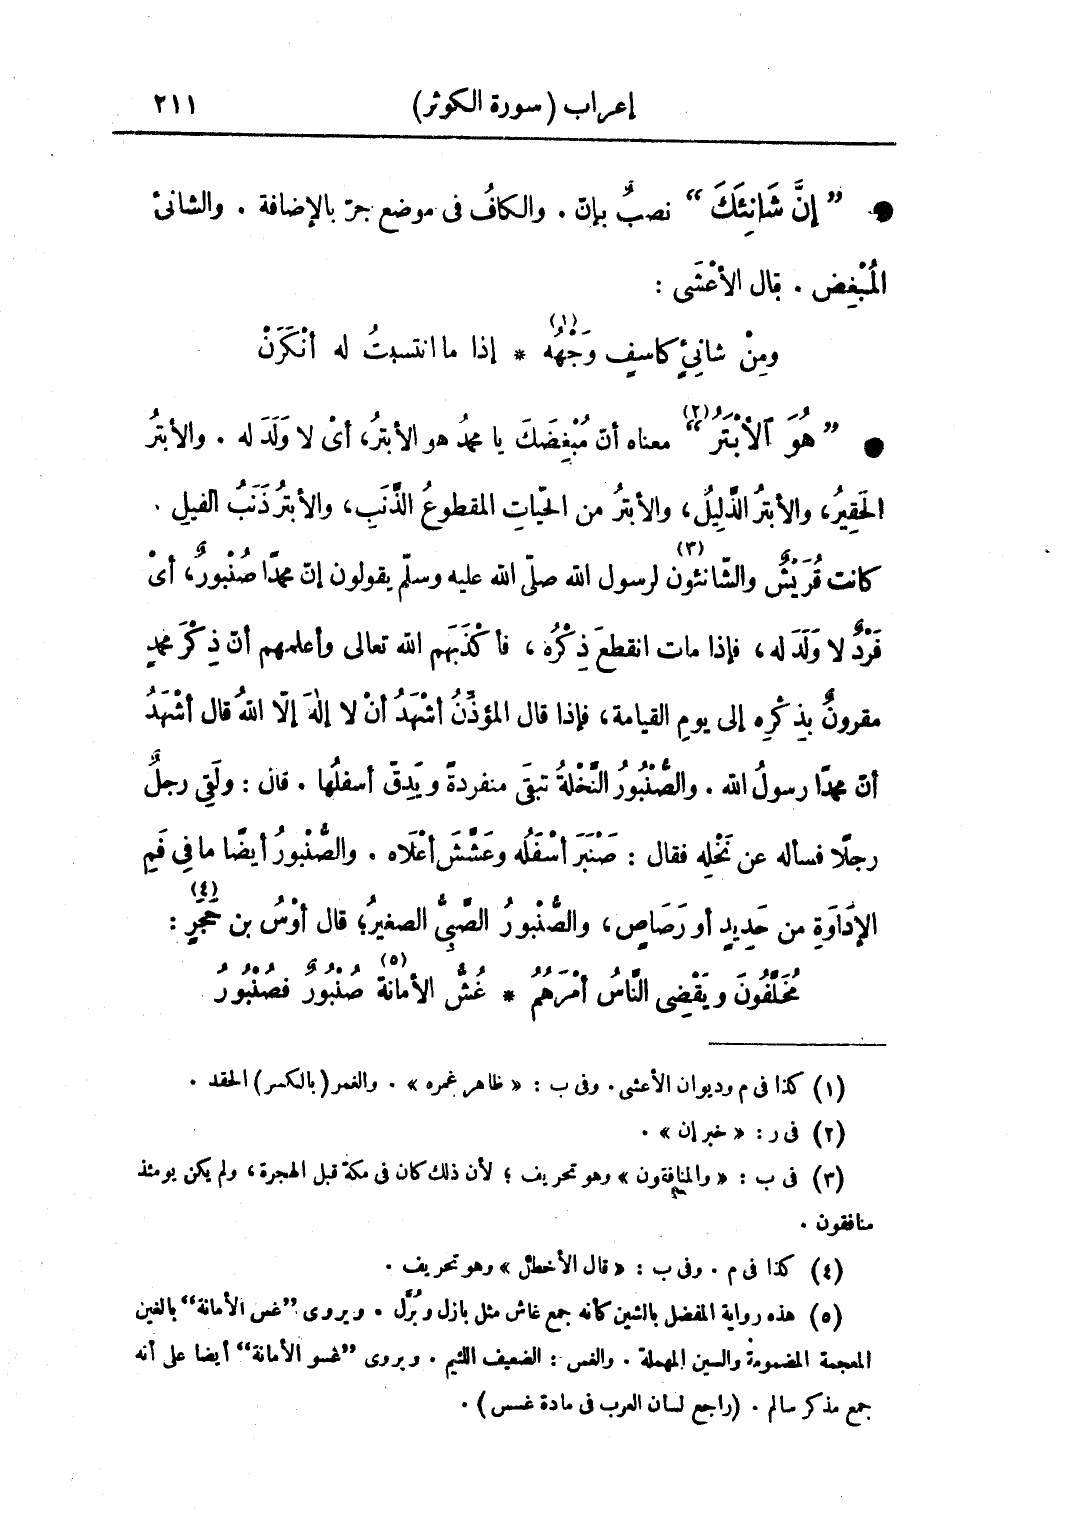 إعراب (سورة الكوثر) ٢١١
● ” إنَّ شَانِئَكَ “ نصبٌ بإنّ . والكافُ فى موضع جرّ بالإضافة . والشانئ
المُبْغِض . قال الأعْشَى :
ومِنْ شانِئٍ كاسفٍ وَجْهُه (١) * إذا ما انتسبتُ له أنْكَرَنْ
● ” هُوَ ٱلأَبْتَرُ “ (٢) معناه أنّ مُبْغِضَكَ يا محمدُ هو الأبترُ، أىْ لا وَلَدَ له . والأبترُ
الحَقِيرُ، والأبترُ الذَّلِيلُ، والأبترُ من الحيّاتِ المقطوعُ الذَّنَبِ، والأبترُ ذَنَبُ الفيلِ .
كانت قُرَيْشٌ والشّانئون (٣) لرسول الله صلّى الله عليه وسلّم يقولون إنّ محمدًا صُنْبورٌ، أىْ
فَرْدٌ لا وَلَدَ له، فإذا مات انقطعَ ذِكْرُه ، فأكْذَبَهم الله تعالى وأعلمهم أنّ ذِكْرَ محمدٍ
مقرونٌ بذِكْرِه إلى يومِ القيامة، فإذا قال المؤذِّنُ أشْهَدُ أنْ لا إلٰهَ إلّا اللهُ قال أشْهَدُ
أنّ محمدًا رسولُ الله . والصُّنْبُورُ النَّخْلةُ تبقَى منفردةً ويَدِقّ أسفلُها . قال : ولَقِيَ رجلٌ
رجلًا فسأله عن نَخْلِه فقال : صَنْبَرَ أسْفَلُه وعَشَّشَ أعْلَاه . والصُّنْبورُ أيضًا ما فى فَمِ
الإدَاوَةِ من حَدِيدٍ أو رَصَاصٍ، والصُّنْبورُ الصَّبِىُّ الصغيرُ؛ قال أوْسُ بن حَجَرٍ (٤) :
مُخَلَّفُونَ ويَقْضِى النَّاسُ أمْرَهُمُ * غُشُّ الأمانة (٥) صُنْبُورٌ فصُنْبُورُ
(١) كذا فى م وديوان الأعشى . وفى ب : « ظاهر غمره » . والغمر (بالكسر) الحقد .
(٢) فى ر : « خبر إن » .
(٣) فى ب : « والمنافقون » وهو تحريف ؛ لأن ذلك كان فى مكة قبل الهجرة، ولم يكن يومئذ
منافقون .
(٤) كذا فى م . وفى ب : « قال الأخطل » وهو تحريف .
(٥) هذه رواية المفضل بالشين كأنه جمع غاش مثل بازل وبُزَّل . ويروى ”غس الأمانة“ بالغين
المعجمة المضمومة والسين المهملة . والغس : الضعيف اللئيم . ويروى ”غسو الأمانة“ أيضا على أنه
جمع مذكر سالم . (راجع لسان العرب فى مادة غسس) .